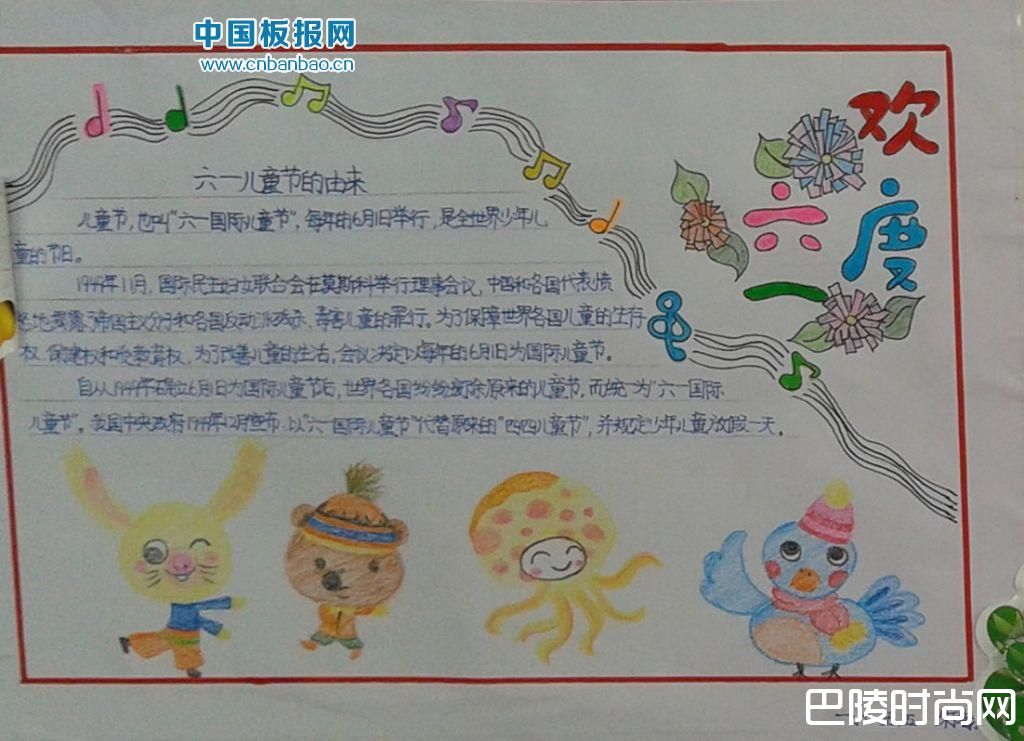 中国板报网
www.cnbanbao.cn
欢度
六一
六一儿童节的由来
儿童节，也叫“六一国际儿童节”，每年的6月1日举行，是全世界少年儿
童的节日。
1949年11月，国际民主妇女联合会在莫斯科举行理事会议，中国和各国代表愤
怒地揭露了帝国主义分子和各国反动派残杀、毒害儿童的罪行。为了保障世界各国儿童的生存
权、保健权和受教育权，为了改善儿童的生活，会议决定以每年的6月1日为国际儿童节。
自从1949年确立6月1日为国际儿童节后，世界各国纷纷废除原来的儿童节，而统一为“六一国际
儿童节”。我国中央政府1949年12月宣布，以“六一国际儿童节”代替原来的“四四儿童节”，并规定少年儿童放假一天。
巴陵时尚网